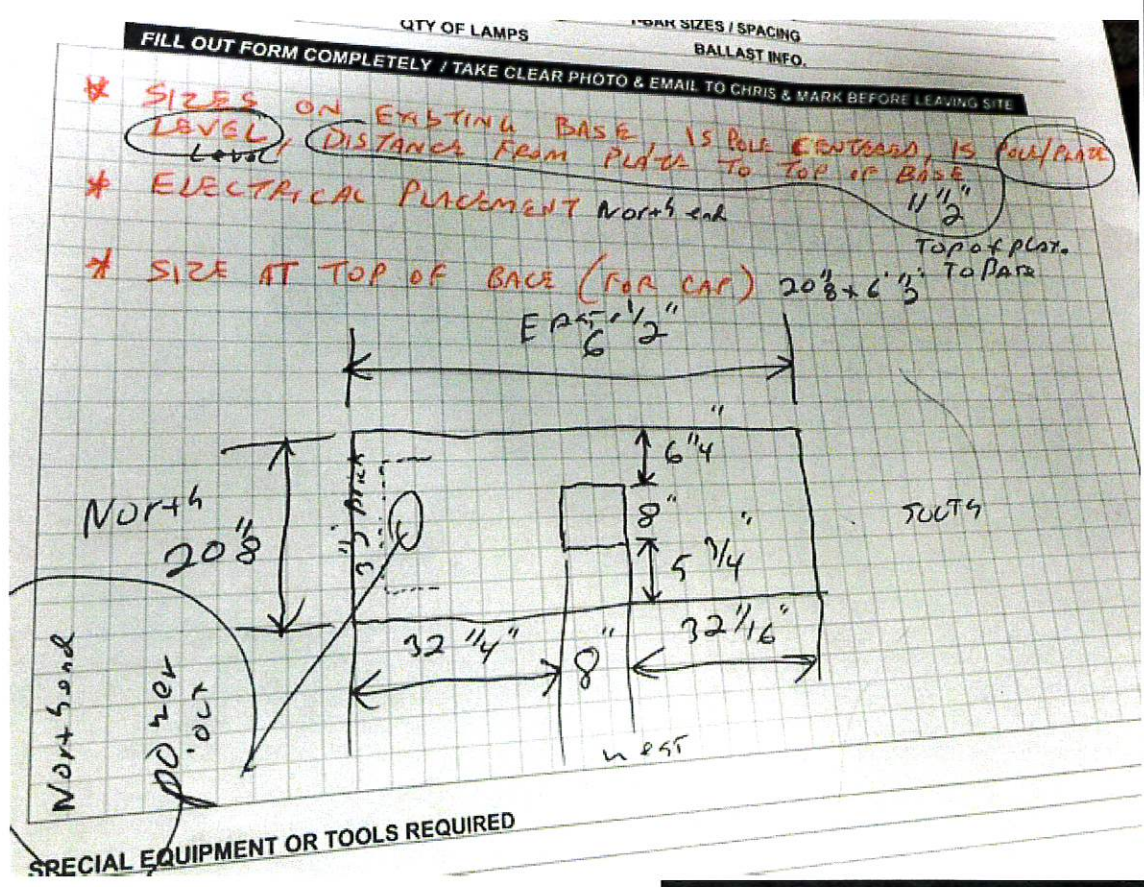 QTY OF LAMPS
T-BAR SIZES / SPACING
BALLAST INFO.
FILL OUT FORM COMPLETELY / TAKE CLEAR PHOTO & EMAIL TO CHRIS & MARK BEFORE LEAVING SITE
* SIZES ON EXISTING BASE, IS POLE CENTERED, IS POLE/PLATE
LEVEL, DISTANCE FROM PLATE TO TOP OF BASE
Level
11 1/2"
* ELECTRICAL PLACEMENT North end
Top of plat.
To Base
* SIZE AT TOP OF BASE (FOR CAP) 20 1/8 x 6 1/2"
East 1/2"
6
6 1/4"
North
20 1/8"
3 1/2" brick
8"
5 3/4"
South
32 1/4"
8"
32 1/16"
west
North end
power
oct
SPECIAL EQUIPMENT OR TOOLS REQUIRED